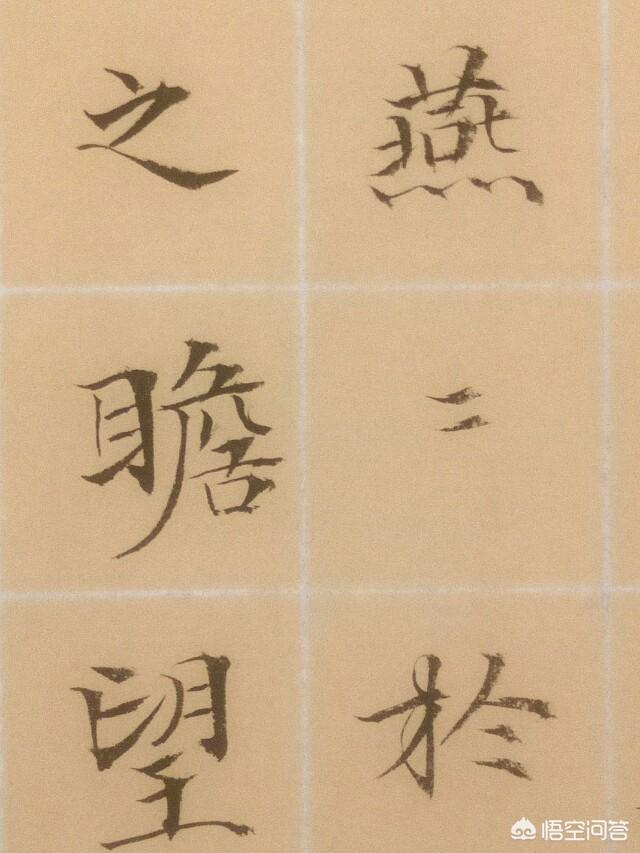 燕〻於
之瞻望
悟空问答